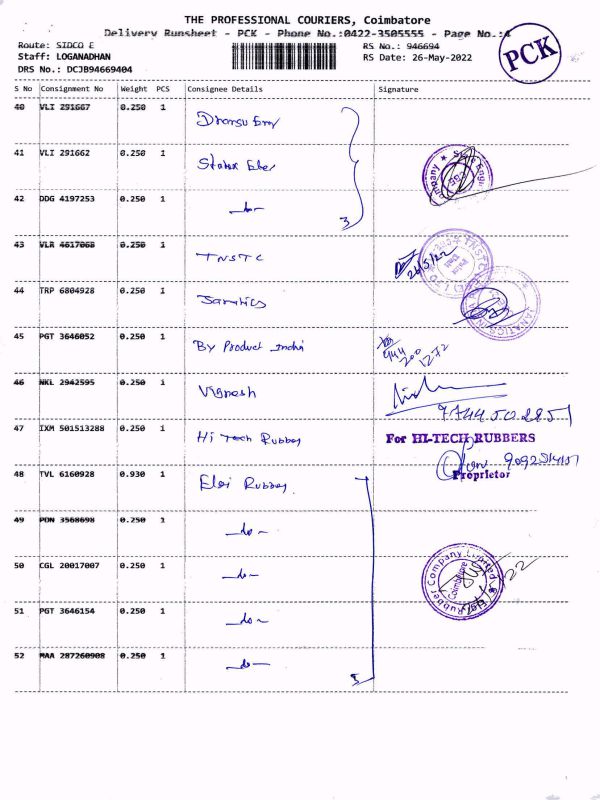 THE PROFESSIONAL COURIERS, Coimbatore
Delivery Runsheet - PCK - Phone No.:0422-3505555 - Page No.:4
PCK
Route: SIDCO E
RS No.: 946694
Staff: LOGANADHAN
RS Date: 26-May-2022
DRS No.: DCJB94669404
S No Consignment No Weight PCS Consignee Details Signature
40 VLI 291667 0.250 1
41 VLI 291662 0.250 1
42 DDG 4197253 0.250 1 -do-
3
43 VLR 4617068 0.250 1 TNSTC 26/5/22
44 TRP 6804928 0.250 1
45 PGT 3646052 0.250 1 By Product India
46 NKL 2942595 0.250 1 Vignesh
47 IXM 501513288 0.250 1 Hi Tech Rubber
For HI-TECH RUBBERS
Proprietor
48 TVL 6160928 0.930 1 Elgi Rubber
49 PDN 3568698 0.250 1 -do-
50 CGL 20017007 0.250 1 -do-
Elgi Rubber Company Limited
Coimbatore
51 PGT 3646154 0.250 1 -do-
52 MAA 287260908 0.250 1 -do-
5